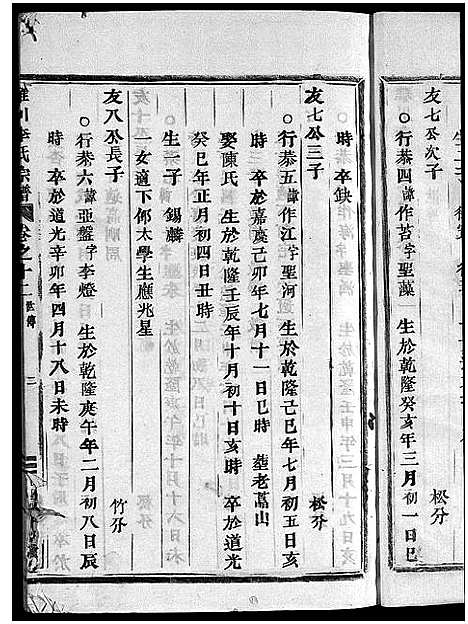 友七公次子
松分
行恭四諱作苫字聖藻 生於乾隆癸亥年三月初一日巳
時 卒缺
友七公三子
松分
行恭五諱作江字聖河 生於乾隆己巳年七月初五日亥
時 卒於嘉慶己卯年七月十一日巳時 塟老蒿山
娶陳氏 生於乾隆壬辰年十月初十日亥時 卒於道光
癸巳年正月初四日丑時
生一子 錫麟
一女適下邳太學生應兆星
友八公長子
竹分
行恭六諱亞盤字李燈 生於乾隆庚午年二月初八日辰
時 卒於道光辛卯年四月十八日未時
氏宗譜 卷之十二 世傳 三